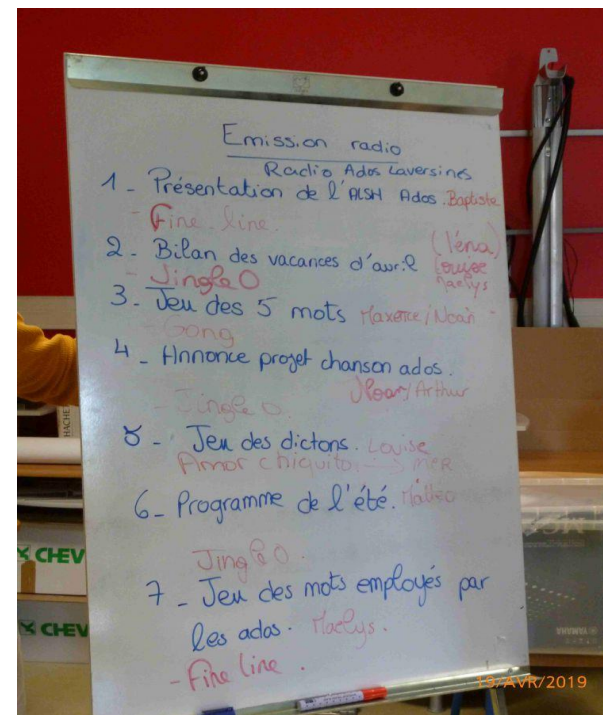 Emission radio
Radio Ados Laversines
1 - Présentation de l'ALSH Ados. Baptiste
- Fine line.
2 - Bilan des vacances d'avril (léna)
Louise
Maelys
- Jingle O
3 - Jeu des 5 mots Maxence / Noah
- Gong
4 - Annonce projet chanson ados.
Noar / Arthur
- Jingle O.
5 - Jeu des dictons. Louise
Amor chiquito → MER
6 - Programme de l'été. Mattéo
Jingle O.
7 - Jeu des mots employés par
les ados. Maelys.
- Fine line.
HACHE
CHEV
CHEV
YAMAHA
19/AVR/2019